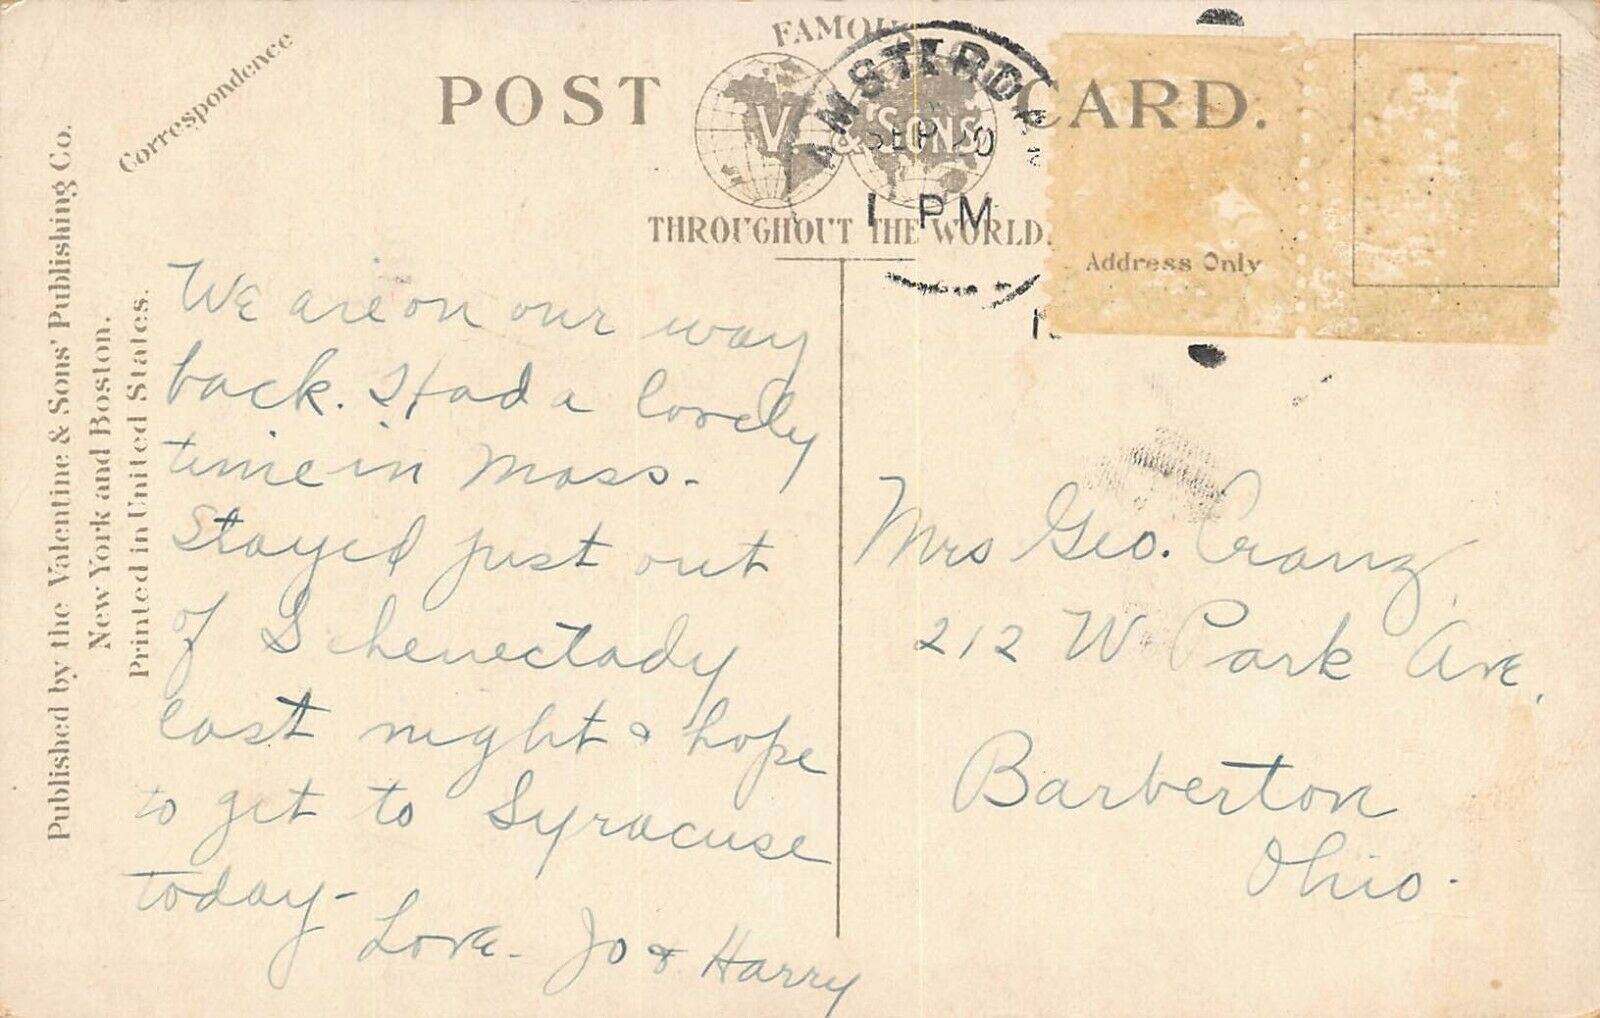 Correspondence
POST CARD.
FAMOUS
V. & SONS
THROUGHOUT THE WORLD.
AMSTERDA
SEP 20
1 PM
Address Only
Published by the Valentine & Sons' Publishing Co.
New York and Boston.
Printed in United States.
We are on our way
back. Had a lovely
time in Mass.
Stayed just out
of Schenectady
last night & hope
to get to Syracuse
today-
Love. Jo & Harry
Mrs Geo. Cranz
212 W Park Ave,
Barberton
Ohio.